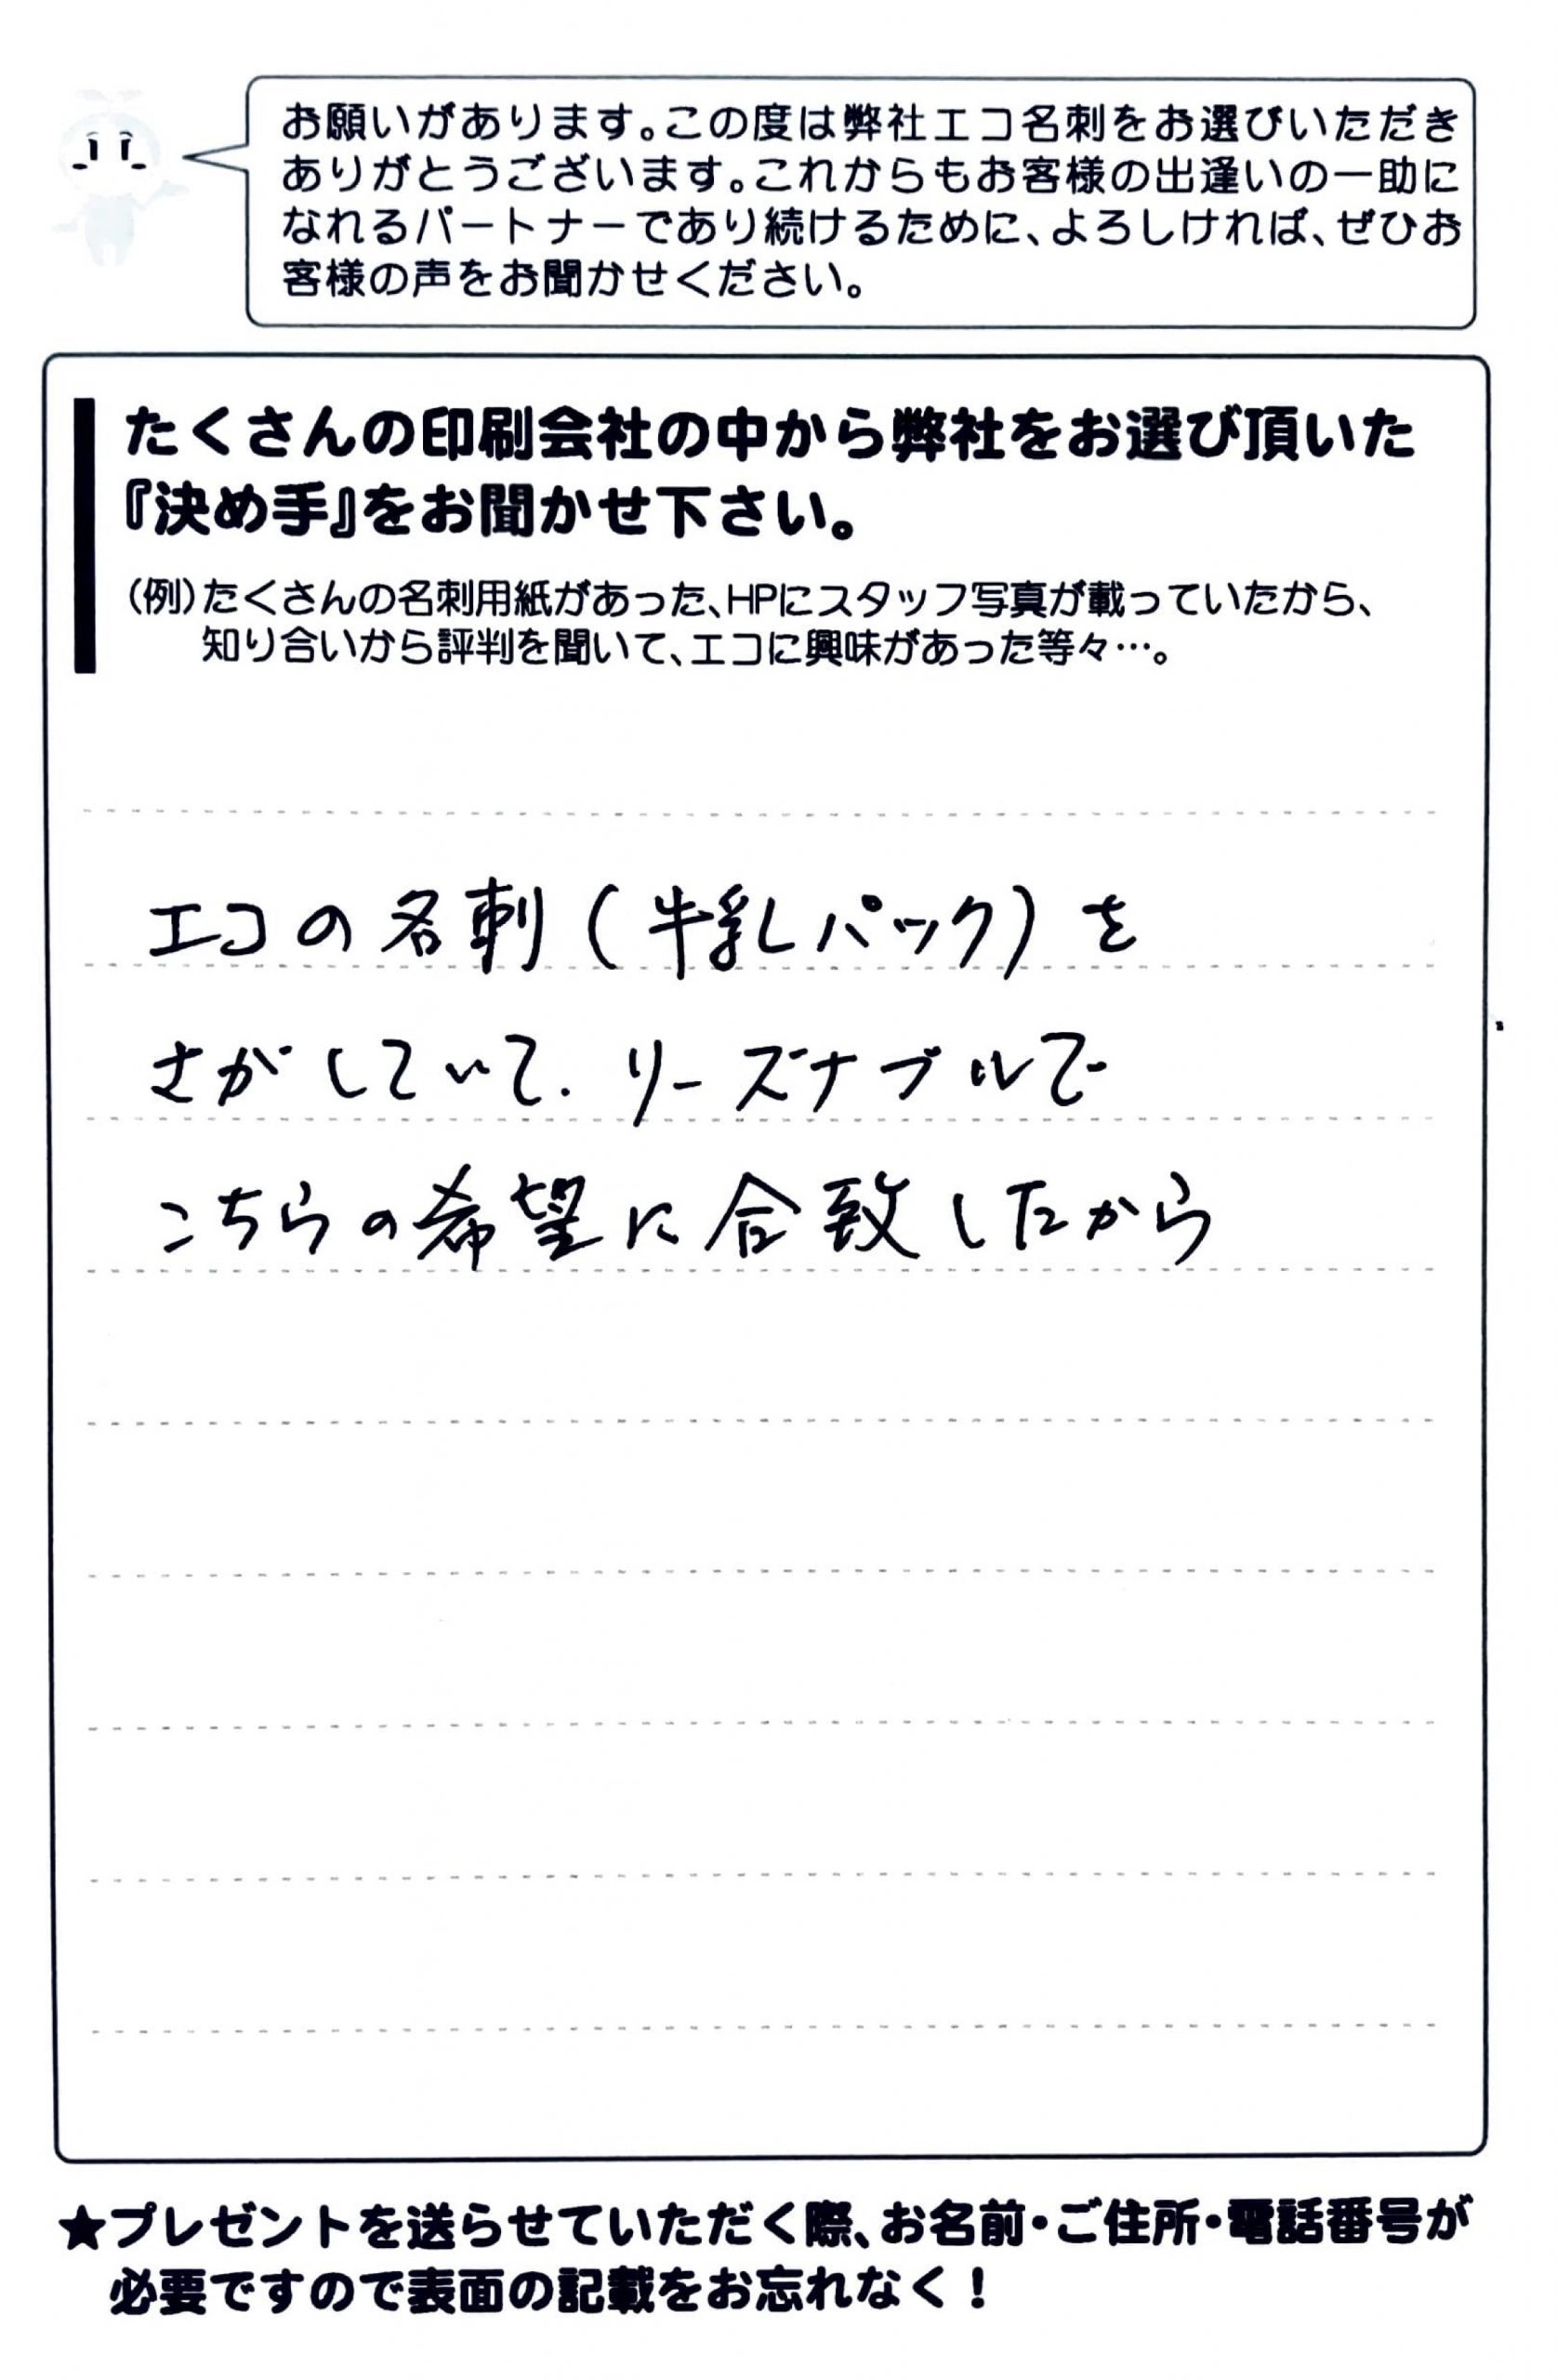 お願いがあります。この度は弊社エコ名刺をお選びいただき
ありがとうございます。これからもお客様の出逢いの一助に
なれるパートナーであり続けるために、よろしければ、ぜひお
客様の声をお聞かせください。
たくさんの印刷会社の中から弊社をお選び頂いた
『決め手』をお聞かせ下さい。
（例）たくさんの名刺用紙があった、HPにスタッフ写真が載っていたから、
知り合いから評判を聞いて、エコに興味があった等々…。
エコの名刺(牛乳パック)を
さがしていて.リーズナブルで
こちらの希望に合致したから
★プレゼントを送らせていただく際、お名前・ご住所・電話番号が
必要ですので表面の記載をお忘れなく！